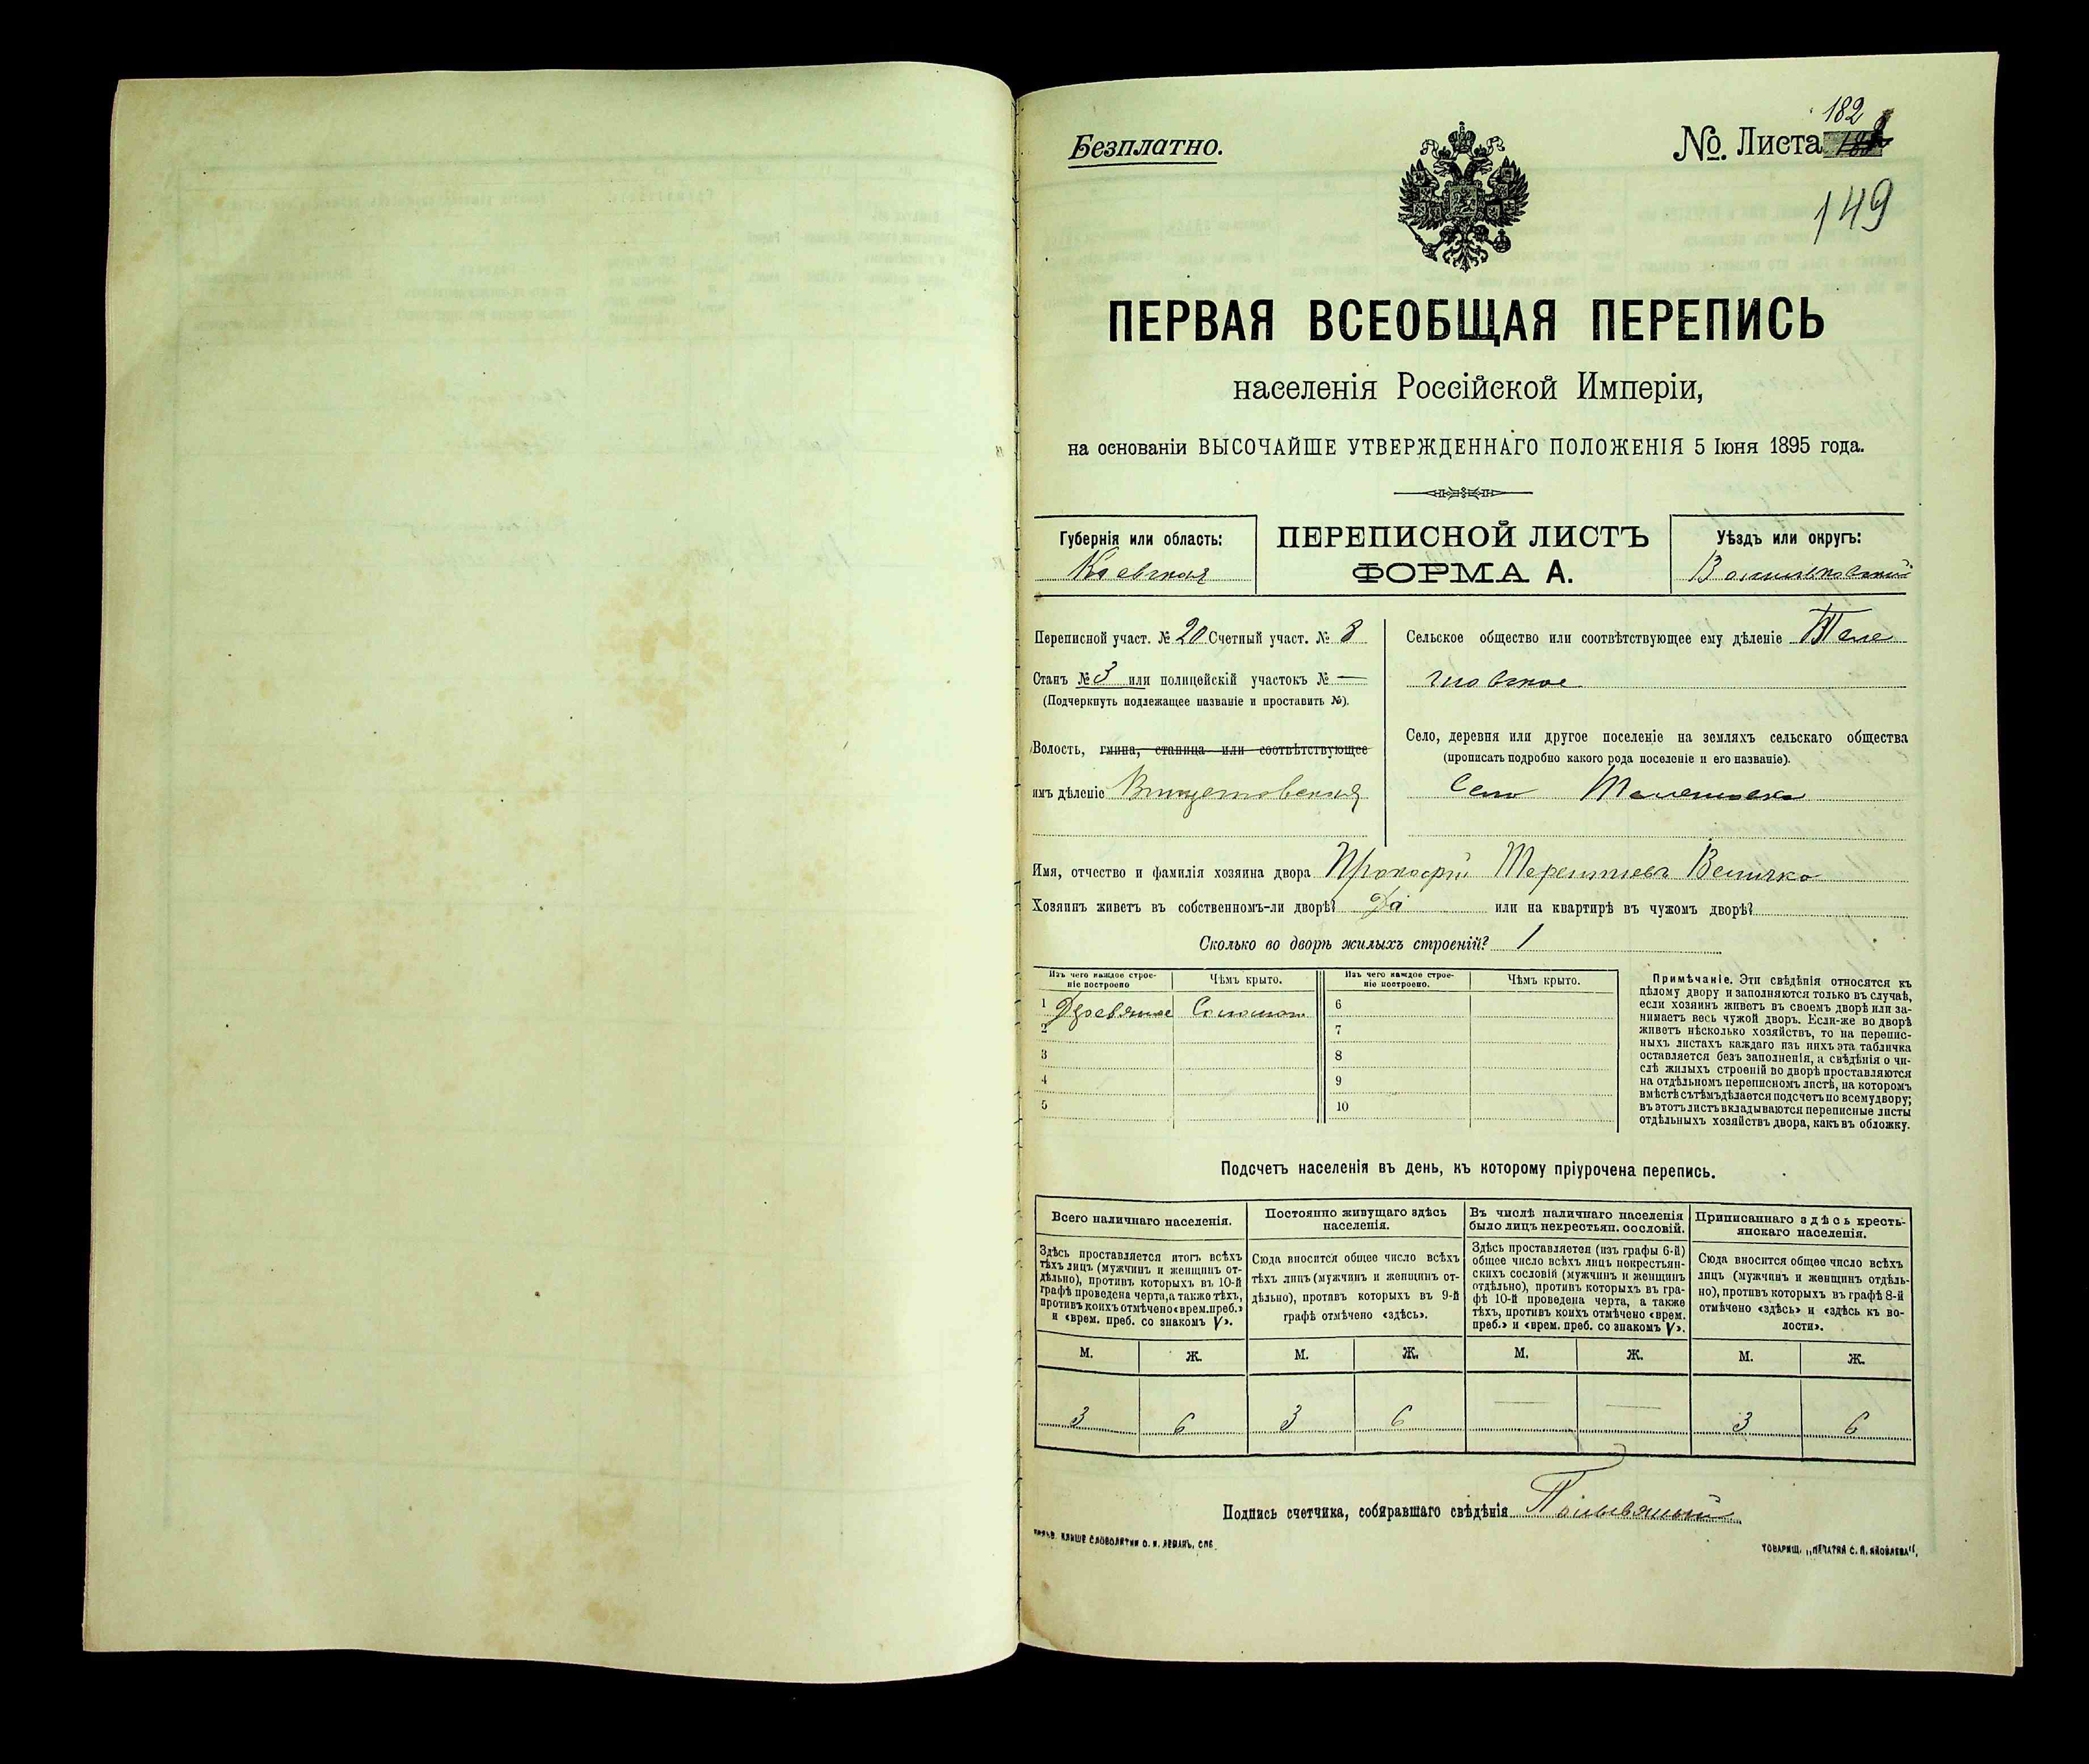 Безплатно.
№ Листа 182
149
ПЕРВАЯ ВСЕОБЩАЯ ПЕРЕПИСЬ
населенія Россійской Имперіи,
на основаніи ВЫСОЧАЙШЕ УТВЕРЖДЕННАГО ПОЛОЖЕНІЯ 5 Іюня 1895 года.
Губернія или область:
Кіевская
ПЕРЕПИСНОЙ ЛИСТЪ
ФОРМА А.
Уѣздъ или округъ:
Васильковскій
Переписной участ. № 20 Счетный участ. № 8
Станъ № 3 или полицейскій участокъ № —
(Подчеркнуть подлежащее названіе и проставить №).
Волость, гмина, станица или соотвѣтствующее
имъ дѣленіе
Сельское общество или соотвѣтствующее ему дѣленіе
Село, деревня или другое поселеніе на земляхъ сельскаго общества
(прописать подробно какого рода поселеніе и его названіе).
Село
Имя, отчество и фамилія хозяина двора Прокофій Терентіевъ Величко
Хозяинъ живетъ въ собственномъ-ли дворѣ? Да или на квартирѣ въ чужомъ дворѣ?
Сколько во дворѣ жилыхъ строеній? 1
Изъ чего каждое строе-
ніе построено
Чѣмъ крыто.
Изъ чего каждое строе-
ніе построено.
Чѣмъ крыто.
1 Деревянное Соломою 6
2 7
3 8
4 9
5 10
Примѣчаніе. Эти свѣдѣнія относятся къ
цѣлому двору и заполняются только въ случаѣ,
если хозяинъ живетъ въ своемъ дворѣ или за-
нимаетъ весь чужой дворъ. Если-же во дворѣ
живетъ нѣсколько хозяйствъ, то на перепис-
ныхъ листахъ каждаго изъ нихъ эта табличка
оставляется безъ заполненія, а свѣдѣнія о чи-
слѣ жилыхъ строеній во дворѣ проставляются
на отдѣльномъ переписномъ листѣ, на которомъ
вмѣстѣ съ тѣмъ дѣлается подсчетъ по всему двору;
въ этотъ листъ вкладываются переписные листы
отдѣльныхъ хозяйствъ двора, какъ въ обложку.
Подсчетъ населенія въ день, къ которому пріурочена перепись.
Всего наличнаго населенія.
Здѣсь проставляется итогъ всѣхъ
тѣхъ лицъ (мужчинъ и женщинъ от-
дѣльно), противъ которыхъ въ 10-й
графѣ проведена черта, а также тѣхъ,
противъ коихъ отмѣчено «врем. преб.»
и «врем. преб. со знакомъ V».
Постоянно живущаго здѣсь
населенія.
Сюда вносится общее число всѣхъ
тѣхъ лицъ (мужчинъ и женщинъ от-
дѣльно), противъ которыхъ въ 9-й
графѣ отмѣчено «здѣсь».
Въ числѣ наличнаго населенія
было лицъ некрестьян. сословій.
Здѣсь проставляется (изъ графы 6-й)
общее число всѣхъ лицъ некрестьян-
скихъ сословій (мужчинъ и женщинъ
отдѣльно), противъ которыхъ въ гра-
фѣ 10-й проведена черта, а также
тѣхъ, противъ коихъ отмѣчено «врем.
преб.» и «врем. преб. со знакомъ V».
Приписаннаго здѣсь кресть-
янскаго населенія.
Сюда вносится общее число всѣхъ
лицъ (мужчинъ и женщинъ отдѣль-
но), противъ которыхъ въ графѣ 8-й
отмѣчено «здѣсь» и «здѣсь къ во-
лости».
М. Ж. М. Ж. М. Ж. М. Ж.
3 6 3 6 — — 3 6
Подпись счетчика, собиравшаго свѣдѣнія
КЛИШЕ СЛОВОЛИТНИ О. И. ЛЕМАНЪ, СПБ.
ТОВАРИЩ. „ПЕЧАТНЯ С. П. ЯКОВЛЕВА",